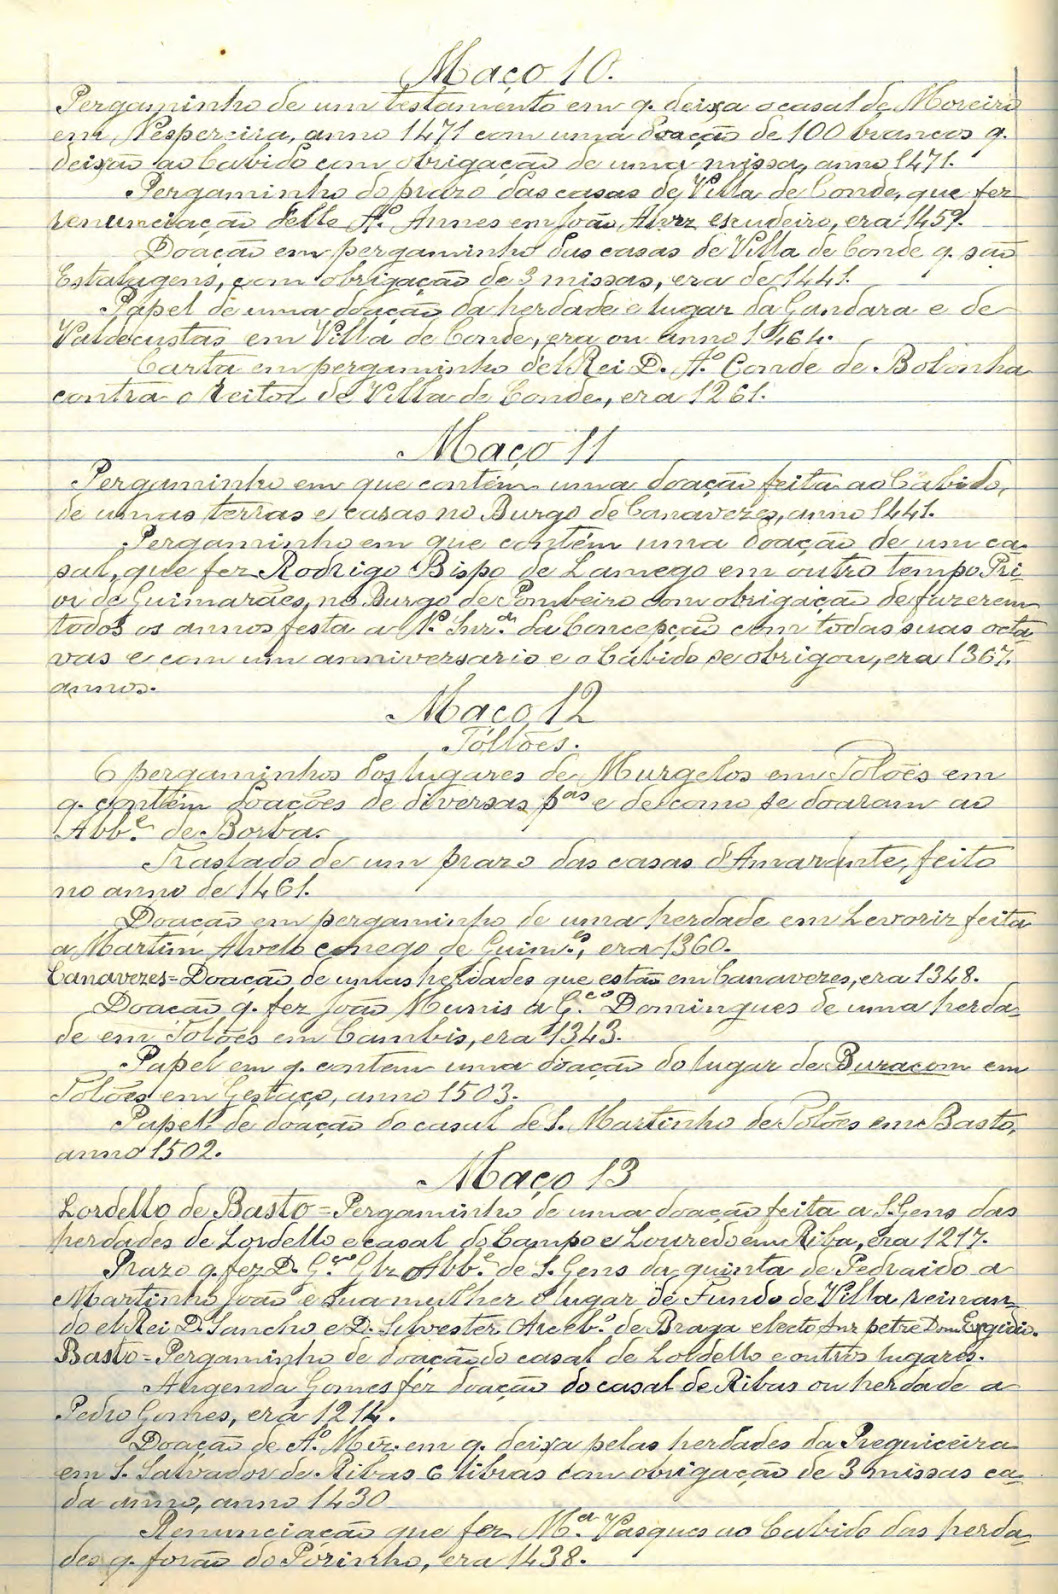 Maço 10.
Pergaminho de um testamento em q. deixa o casal de Moreira
em Nespereira, anno 1471 com uma doação de 100 brancos q.
deixão ao Cabido com obrigação de uma missa, anno 1471.
Pergaminho do prazo das casas de Villa de Conde, que fez
renunciação delle A.º Annes em João Alvrz escudeiro, era 1459.
Doação em pergaminho das casas de Villa de Conde q. são
Estalagens, com obrigação de 3 missas, era de 1441.
Papel de uma doação da herdade e lugar da Gandara e de
Valdecustas em Villa de Conde, era ou anno 1464.
Carta em pergaminho d'el Rei D. A.º Conde de Bolonha
contra o reitor de Villa de Conde, era 1261.
Maço 11
Pergaminho em que contém uma doação feita ao Cabido,
de umas terras e casas no Burgo de Canavezes, anno 1441.
Pergaminho em que contém uma doação de um ca-
sal, que fez Rodrigo Bispo de Lamego em outro tempo Pri-
or de Guimarães, no Burgo de Pombeiro com obrigação de fazerem
todos os annos festa a N.ª Snr.ª da Concepção com todas suas octa-
vas e com um anniversario e o Cabido se obrigou, era 1367.
annos.
Maço 12
Tollões.
6 pergaminhos dos lugares de Murgelos em Tolões em
q. contém doações de diversas p.as e de como se doaram ao
Abb.e de Borba.
Traslado de um prazo das casas d'Amarante, feito
no anno de 1461.
Doação em pergaminho de uma herdade em Levorir feita
a Martim Alvelo conego de Guim.es, era 1360.
Canavezes = Doação de umas herdades que estão em Canavezes, era 1348.
Doação q. fez João Munis a G.co Domingues de uma herda-
de em Tolões em Cambis, era 1343.
Papel em q. contem uma doação do lugar de Buracom em
Tolões em Gestaço, anno 1503.
Papel de doação do casal de S. Martinho de Tolões em Basto,
anno 1502.
Maço 13
Lordello de Basto = Pergaminho de uma doação feita a S. Gens das
herdades de Lordello e casal do Campo e Louredo em Riba, era 1217.
Prazo q. fez D. G.co Glz Abb.e de S. Gens da quinta de Pedraido a
Martinho João e sua mulher o lugar de Fundo de Villa reinan-
do el Rei D. Sancho e D. Silvester Arceb.º de Braga electo Snr petre Dom Egidio.
Basto = Pergaminho de doação do casal de Lordello e outros lugares.
Augenda Gomes fez doação do casal de Ribas ou herdade a
Pedro Gomes, era 1214.
Doação de A.º Mir. em q. deixa pelas herdades da Preguiceira
em S. Salvador de Ribas 6 libras com obrigação de 3 missas ca-
da anno, anno 1430
Renunciação que fez M.ª Vasques ao Cabido das herda-
des q. forão do Pórinho, era 1438.